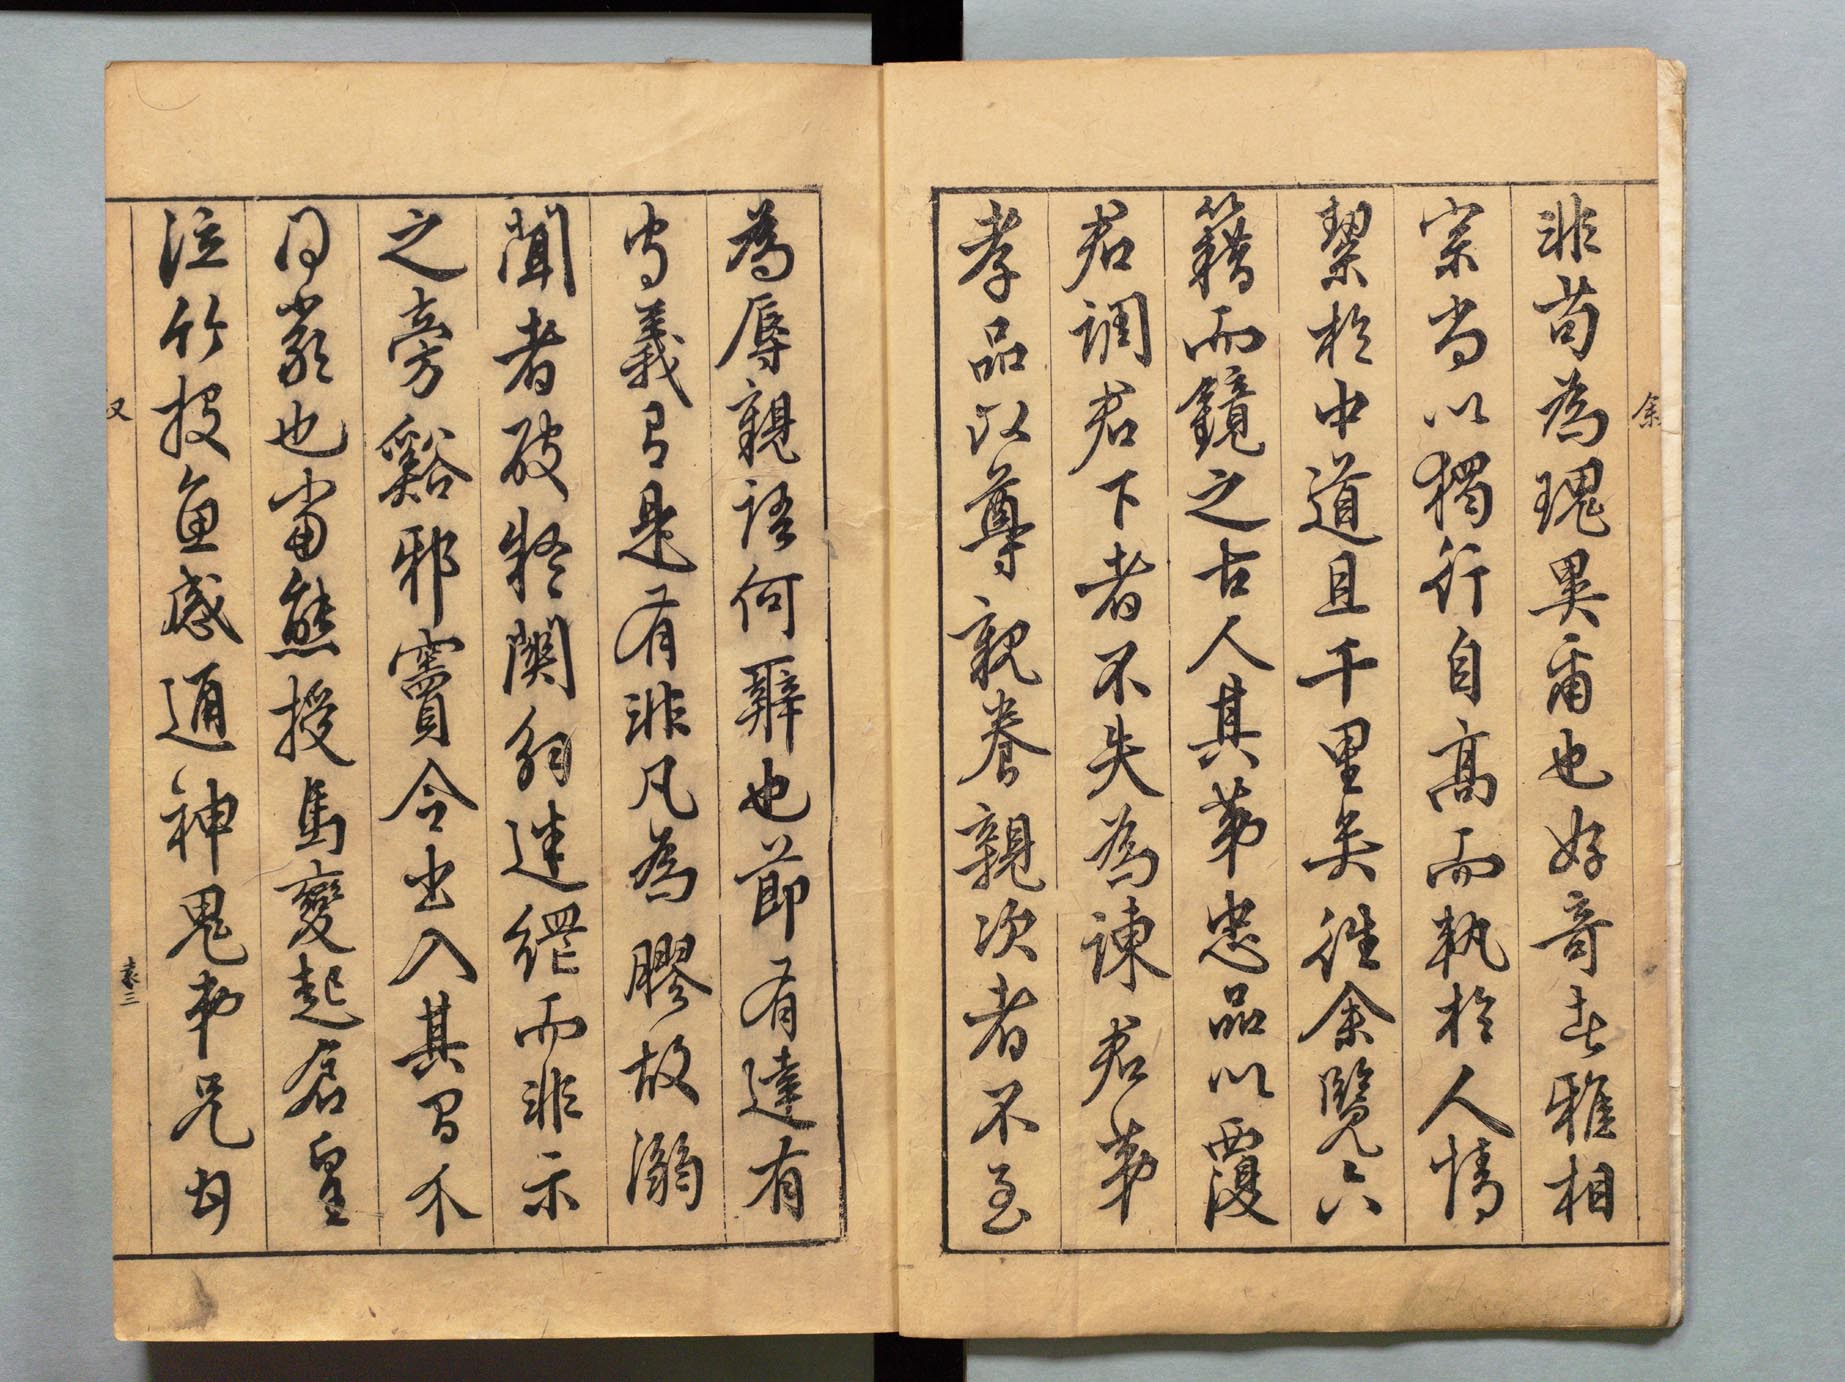 非苟為瑰異甭也好奇去雅相
宗尚以獨行自高而執於人情
絜於中道且千里矣往余覽六
籍而鏡之古人其第忠品以覆
君調君下者不失為諫君第
孝品以尊親養親次者不至
為辱親語何辭也節有達有
守義有是有非凡為膠故溺
聞者破拘關解迷纆而非示
之旁谿邪竇令出入其間不
可羨也當熊授馬變起倉皇
泣竹投魚感通神鬼弟兄女
余
又
袁三